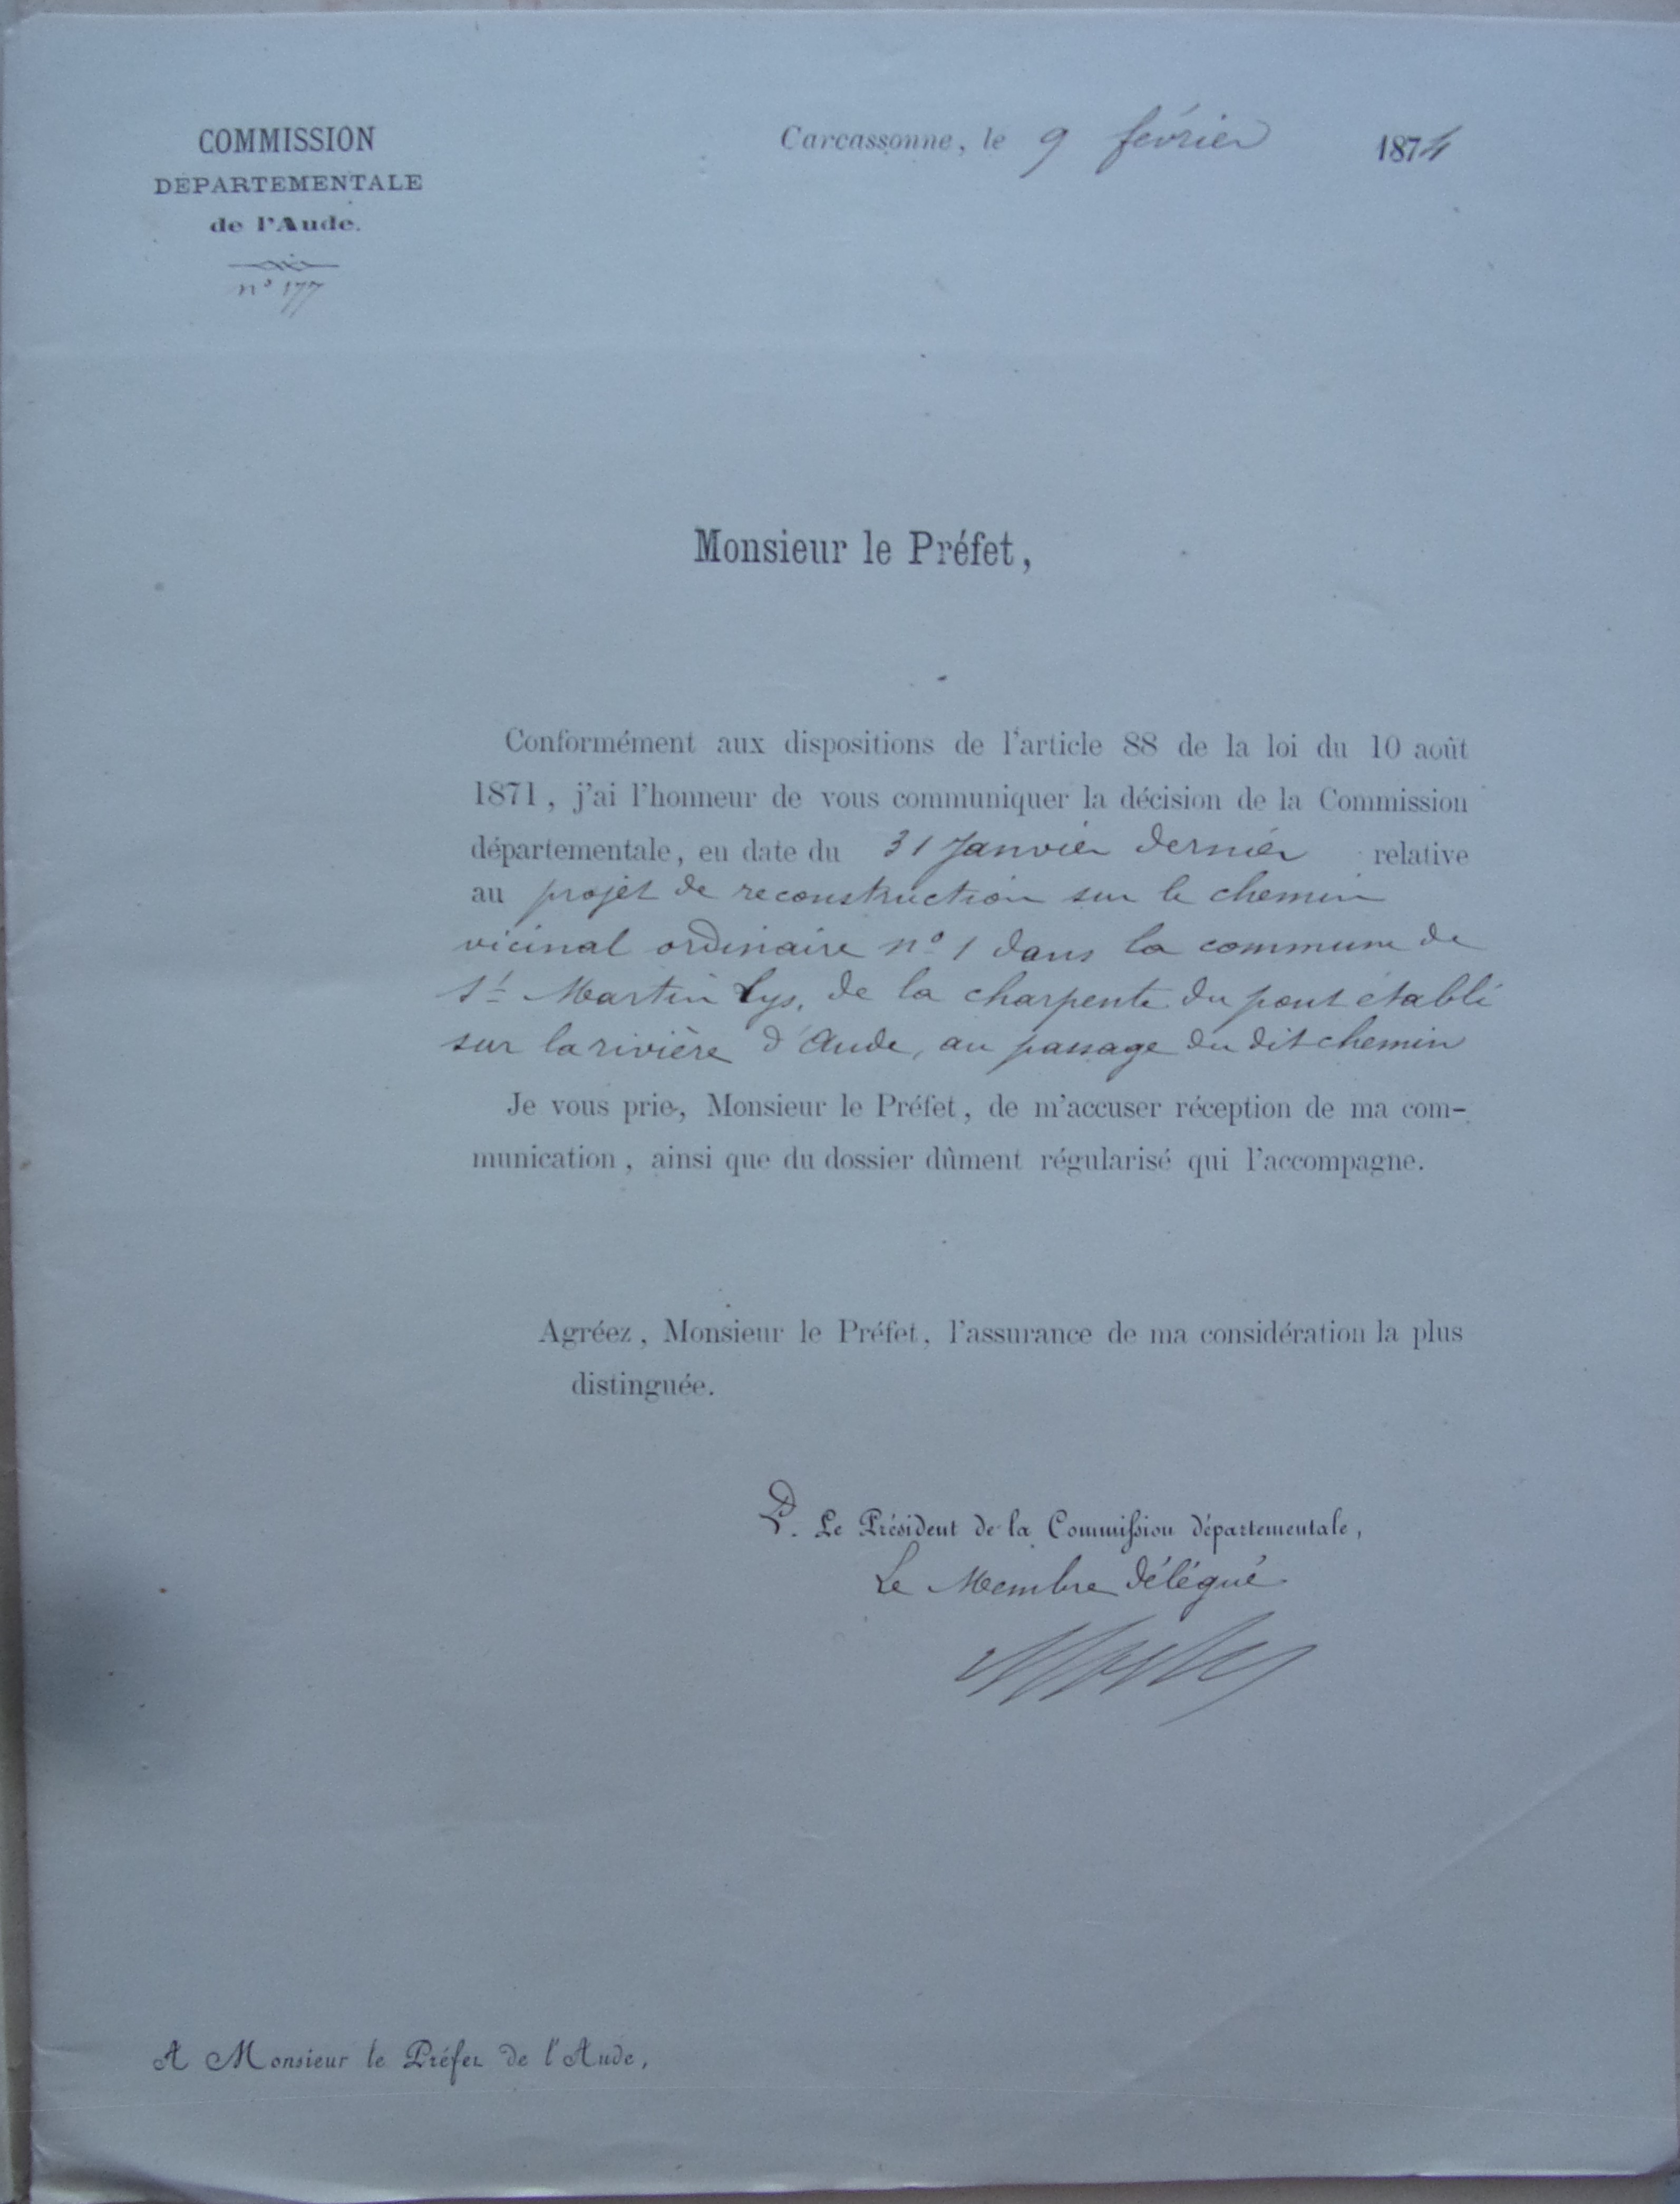 COMMISSION
DÉPARTEMENTALE
de l'Aude.
n° 177
Carcassonne, le 9 février 1874
Monsieur le Préfet,
Conformément aux dispositions de l'article 88 de la loi du 10 août
1871, j'ai l'honneur de vous communiquer la décision de la Commission
départementale, en date du 31 Janvier dernier relative
au projet de reconstruction sur le chemin
vicinal ordinaire n° 1 dans la commune de
St Martin Lys, de la charpente du pont établi
sur la rivière d'Aude, au passage du dit chemin
Je vous prie, Monsieur le Préfet, de m'accuser réception de ma com-
munication, ainsi que du dossier dûment régularisé qui l'accompagne.
Agréez, Monsieur le Préfet, l'assurance de ma considération la plus
distinguée.
P. Le Président de la Commission départementale,
Le Membre délégué
A Monsieur le Préfet de l'Aude,